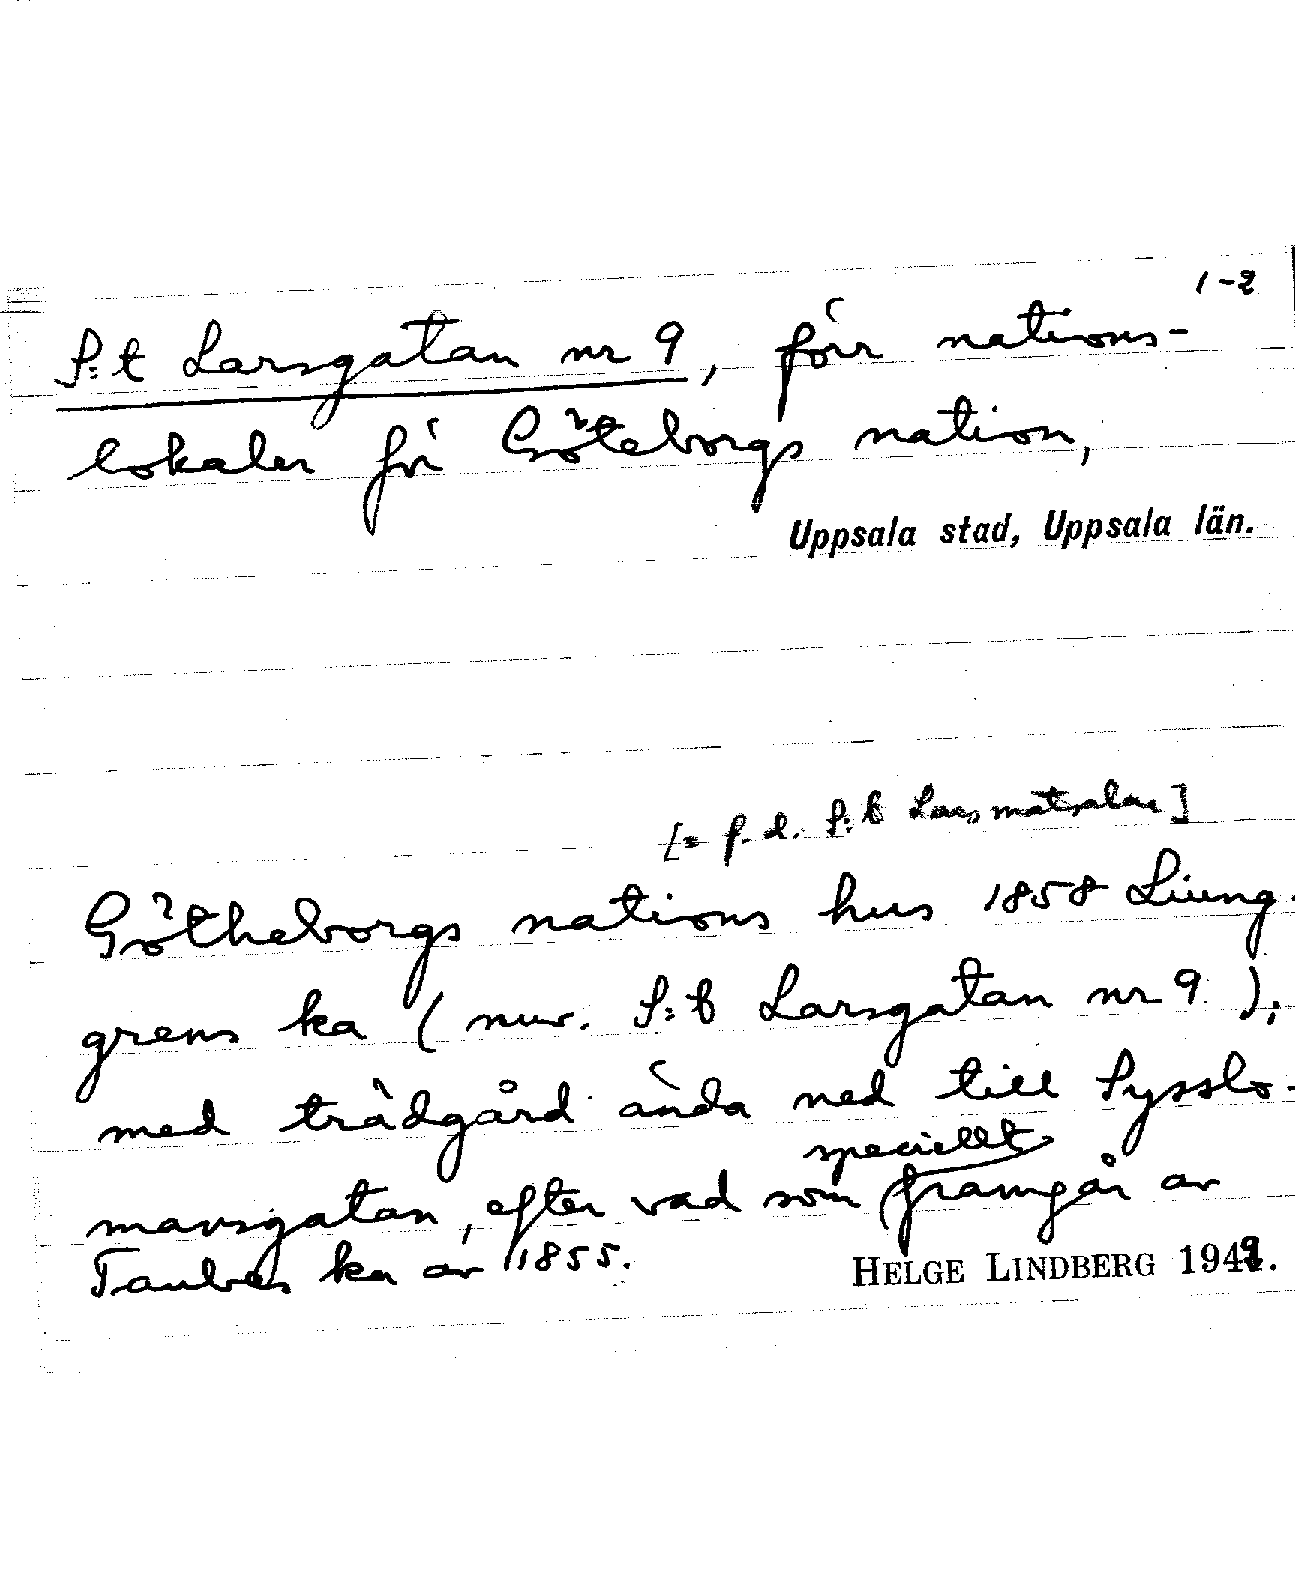 1-2
S:t Larsgatan nr 9, förr nations-
lokaler för Göteborgs nation,
Uppsala stad, Uppsala län.
[= f.d. S:t Lars matsalar]
Götheborgs nations hus 1858 Liung-
grens ka (nuv. S:t Larsgatan nr 9),
med trädgård ända ned till Sysslo-
mansgatan, efter vad som speciellt framgår av
Taubes ka av 1855.
HELGE LINDBERG 1949.